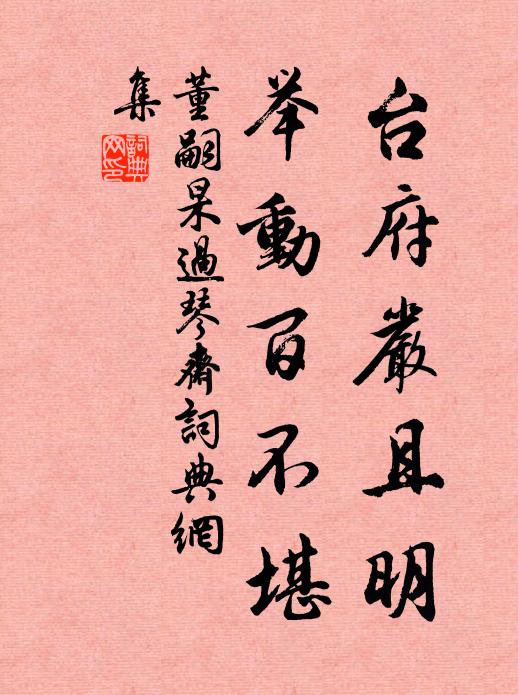 台府嚴且明
举動百不堪
董嗣杲過琴齋詞典網
集
詞典
网印